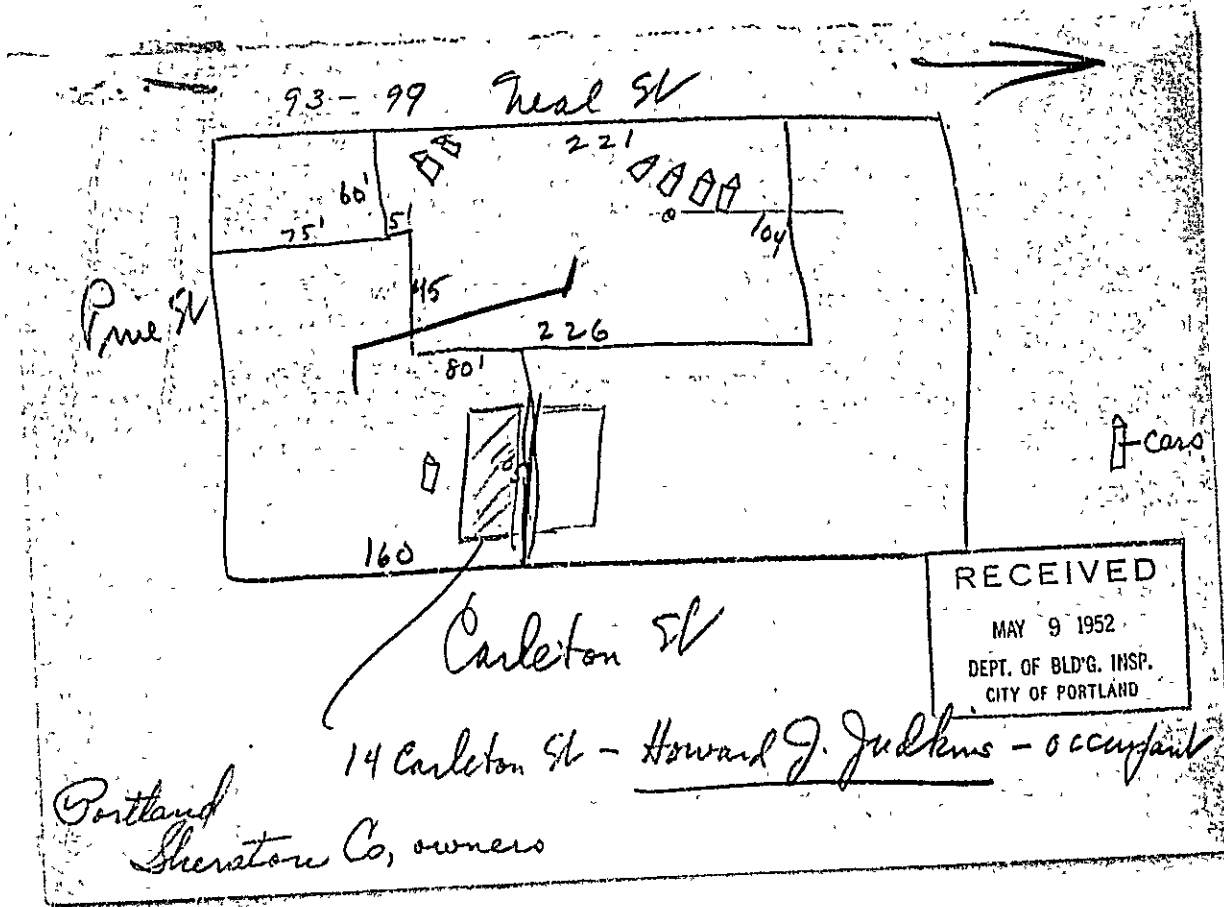 93 - 99 Neal St
221
60'
75'
5'
104
Pine St
45
226
80'
cars
160
RECEIVED
MAY 9 1952
DEPT. OF BLD'G. INSP.
CITY OF PORTLAND
Carleton St
14 Carleton St - Howard J. Judkins - occupant
Portland
Sheraton Co, owners